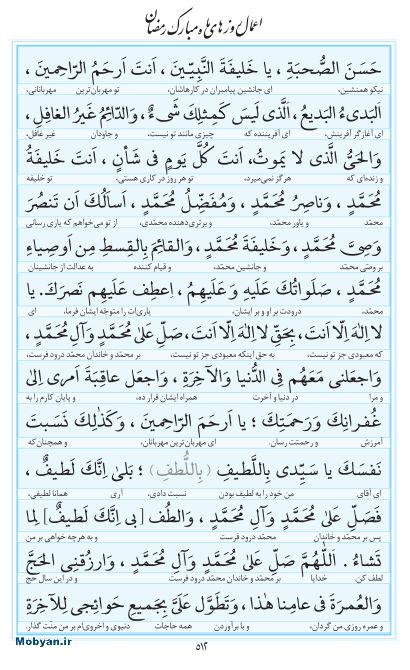 اعمال روزهای ماه مبارک رمضان
حَسَنَ الصُّحبَةِ ، یا خَلیفَةَ النَّبِیّینَ ، اَنتَ اَرحَمُ الرّاحِمینَ ،
نیکو همنشین، ای جانشین پیامبران در کارهاشان، تو مهربان‌ترین مهربانانی،
اَلبَدیءُ البَدیعُ ، اَلَّذی لَیسَ کَمِثلِكَ شَیءٌ ، وَالدّائِمُ غَیرُ الغافِلِ ،
ای آغازگر آفرینش، ای آفریننده که چیزی مانند تو نیست، و جاودان غیر غافل،
وَالحَیُّ الَّذی لا یَموتُ ، اَنتَ کُلَّ یَومٍ فی شَأنٍ ، اَنتَ خَلیفَةُ
و زنده‌ای که هرگز نمی‌میرد، تو هر روز در کاری هستی، تو خلیفه
مُحَمَّدٍ ، وَناصِرُ مُحَمَّدٍ ، وَمُفَضِّلُ مُحَمَّدٍ ، اَسأَلُكَ اَن تَنصُرَ
محمّد و یاور محمّد، و برتری‌دهنده محمّدی، از تو می‌خواهم که یاری رسانی
وَصِیَّ مُحَمَّدٍ ، وَخَلیفَةَ مُحَمَّدٍ ، وَالقائِمَ بِالقِسطِ مِن اَوصِیاءِ
بر وصیّ محمّد، و جانشین محمّد، و قیام کننده به عدالت از جانشینان
مُحَمَّدٍ ، صَلَواتُكَ عَلَیهِ وَعَلَیهِم ، اِعطِف عَلَیهِم نَصرَكَ . یا
محمّد، درودت بر او و بر ایشان، یاری‌ات را متوجّه ایشان فرما، ای
لا اِلٰهَ اِلّا اَنتَ ، بِحَقِّ لا اِلٰهَ اِلّا اَنتَ ، صَلِّ عَلیٰ مُحَمَّدٍ وَآلِ مُحَمَّدٍ ،
که معبودی جز تو نیست، به حق اینکه معبودی جز تو نیست، بر محمّد و خاندان محمّد درود فرست،
وَاجعَلنی مَعَهُم فِی الدُّنیا وَالآخِرَةِ ، وَاجعَل عاقِبَةَ اَمری اِلیٰ
و مرا در دنیا و آخرت همراه ایشان قرار ده، و پایان کارم را به
غُفرانِكَ وَرَحمَتِكَ ؛ یا اَرحَمَ الرّاحِمینَ ، وَکَذٰلِكَ نَسَبتَ
آمرزش و رحمتت رسان. ای مهربان‌ترین مهربانان، و همچنان‌که
نَفسَكَ یا سَیِّدی بِاللَّطیفِ (بِاللُّطفِ) ؛ بَلیٰ اِنَّكَ لَطیفٌ ،
ای آقای من خود را به لطیف بودن نسبت دادی، آری همانا لطیفی،
فَصَلِّ عَلیٰ مُحَمَّدٍ وَآلِ مُحَمَّدٍ ، وَالطُف [بی اِنَّكَ لَطیفٌ] لِما
پس بر محمّد و خاندان محمّد درود فرست و به هرچه خواهی بر من
تَشاءُ . اَللّٰهُمَّ صَلِّ عَلیٰ مُحَمَّدٍ وَآلِ مُحَمَّدٍ ، وَارزُقنِی الحَجَّ
لطف کن. خدایا بر محمّد و خاندان محمّد درود فرست و در این سال حج
وَالعُمرَةَ فی عامِنا هٰذا ، وَتَطَوَّل عَلَیَّ بِجَمیعِ حَوائِجی لِلآخِرَةِ
و عمره روزی من گردان، و با برآوردن همه حاجات دنیوی و اخروی‌ام بر من منّت گذار.
Mobyan.ir
٥١٢